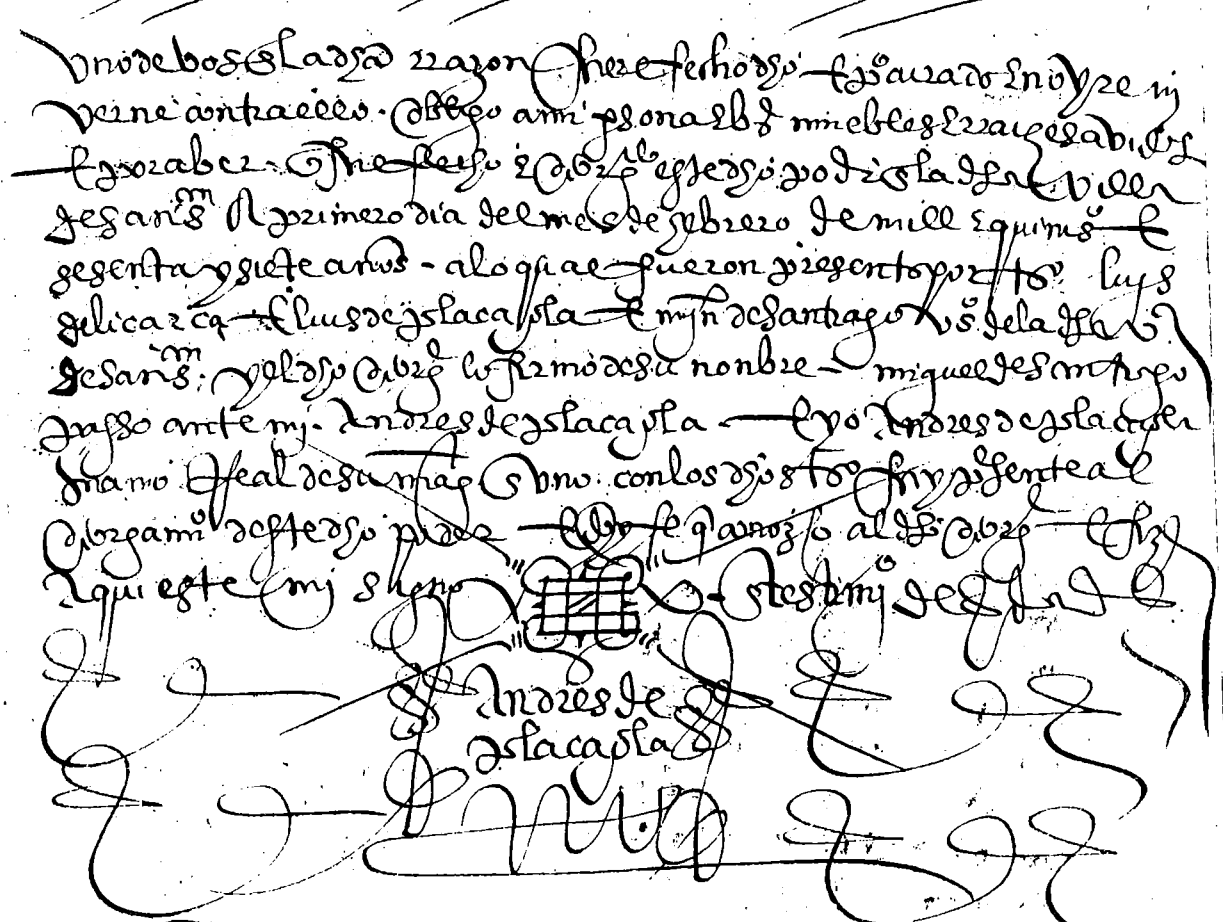 uno de bos es la dha rrazon fuere fecho dho e procurado e no yre ni
verne contra ello. obligo a mi psona e bs muebles e rrayzes avidos
e por aber. fue fecho e otorgdo este dho poder en la dha villa
de sanmn a primero dia del mes de hebrero de mill e quinios e
sesenta y siete años - a lo qual fueron presentes por tos luys
de licarca e luis de ysla cajola e min de santiago vos de la dha va
de sanmn. y el dho otorgte lo firmo de su nonbre - miguel de santiago
passo ante mi. andres de ysla cajola - e yo andres de ysla cajola
escriuano Real de su magt en vno con los dhos tos fuy psente al
otorgamio deste dho poder - e doy fe q conozco al dho otorgte e fiz
aqui este mi signo en testimio de verdad
andres de
ysla cajola